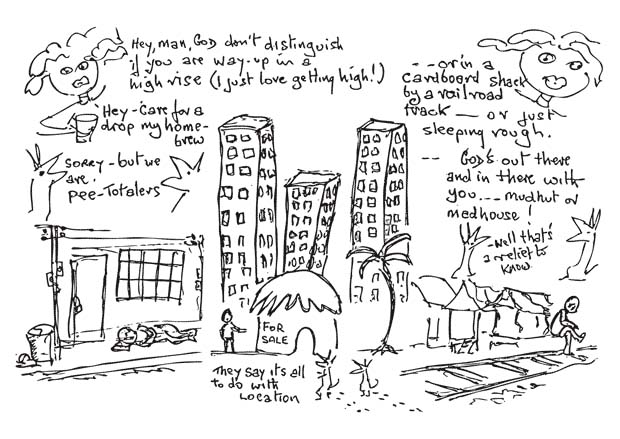 Hey, man, GOD don't distinguish
if you are way-up in a
high rise (I just love getting high!)
Hey - Care for a
drop my home-
brew
Sorry - but we
are
pee-Totalers
-- or in a
cardboard shack
by a railroad
track -- or just
sleeping rough.
-- GOD's out there
and in there with
you --- mudhut or
medhouse!
-Well that's
a relief to
know
FOR
SALE
They say it's all
to do with
Location